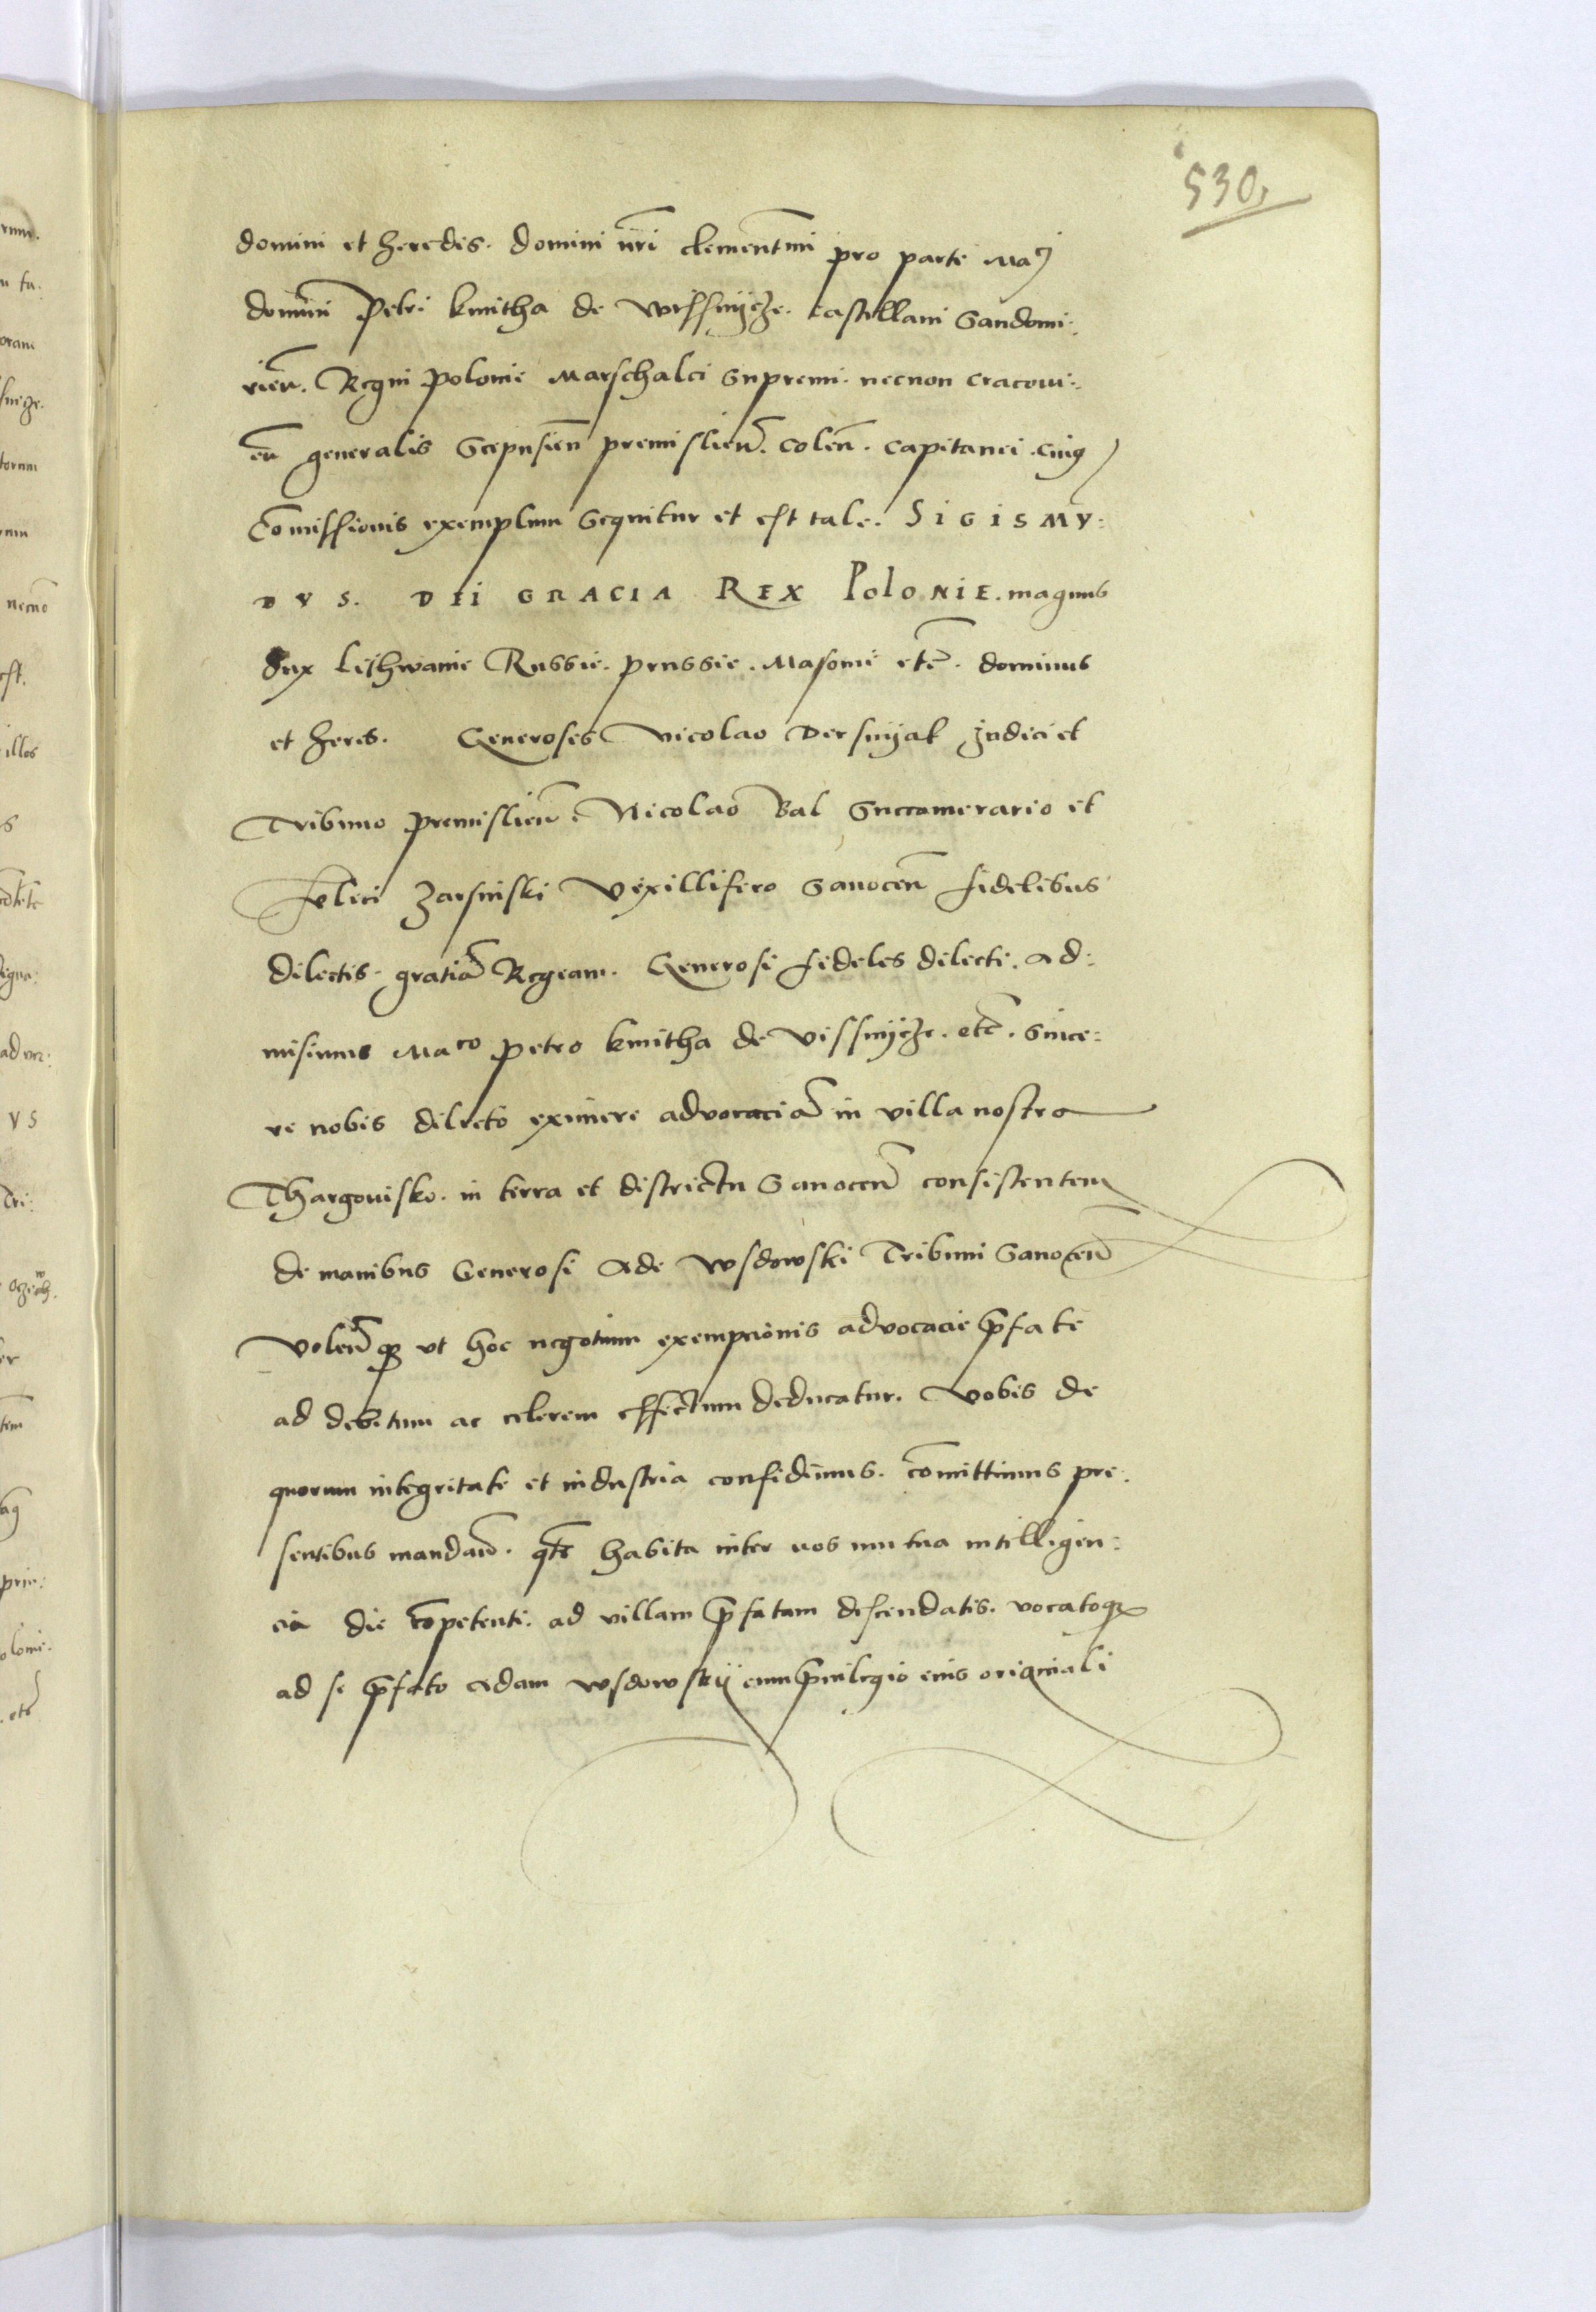 530,
domini et heredis. domini nri clementmi pro parte Maci
domini Petri kmitha de Wissnycze. Castellani Sandomi:
rien. Regni Polonie Marschalci Supremi. necnon Cracovi:
en generalis Scepusien premislien. Colen. Capitanei. Cuius
Comissionis exemplum Sequitur et est tale. SIGISMV:
DVS. DEI GRACIA REX PolonIE. magnus
dux Lithwanie Russie. prussie. Masovie etc. dominus
et heres. Generosis Nicolao Dersnyak Judici et
Tribuno premislien. Nicolao Bal Succamerario et
Felici Zarsinski Vexillifero Sanocen fidelibus
dilectis. gratia Regeam. Generosi fideles dilecti. Ad:
misimus Maco Petro kmitha de Vissnycze. etc. Since:
re nobis dilecto eximere advocacia in villa nostra
Thargovisko. in terra et districtu Sanocen consistentem
de manibus Generosi Ade Wsdowski Tribuni Sanocen
Volen q ut hoc negotium exempcionis advocacie pfate
ad debitum ac celerem effectum deducatur. Vobis de
quorum integritate et industria confidimus. comittimus pre:
sentibus mandan. qte habita inter vos mutua intelligen:
cia die competenti. ad villam pfatam descendatis. vocatoq
ad se pfato Adam Wsdowskij cum pvilegio eius originali